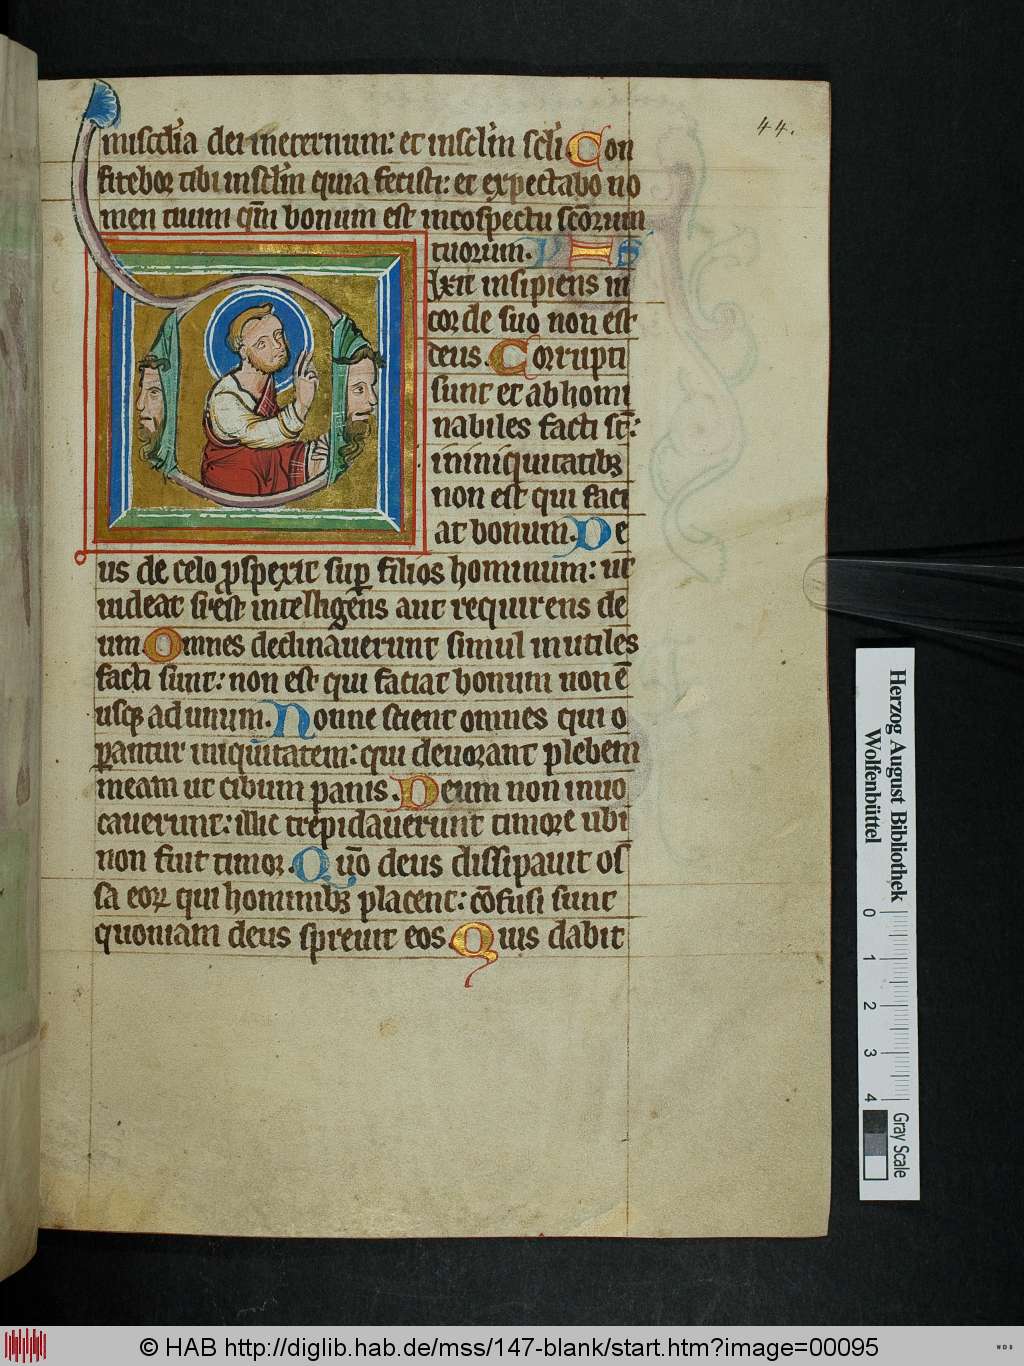 44.
misc̄dia dei ineternum: et insc̄lm sc̄li. Con
fitebor tibi insc̄lm quia fecisti: et expectabo no
men tuum qm̄ bonum est incōspectu sc̄orum
tuorum.
D
Ixit insipiens in
cor de suo non est
deus. Corrupti
sunt et abhomi
nabiles facti st̄:
ininiquitatibꝫ
non est qui faci
at bonum. De
us de celo ꝓspexit suꝑ filios hominum: ut
uideat si est intelligens aut requirens de
um. Omnes declinauerunt simul inutiles
facti sunt: non est qui faciat bonum non ē
usqꝫ ad unum. Nonne scient omnes qui o
ꝑantur iniquitatem: qui deuorant plebem
meam ut cibum panis. Deum non inuo
cauerunt: illic trepidauerunt timore ubi
non fuit timor. Qūo deus dissipauit os
sa eoꝝ qui hominibꝫ placent: cōfusi sunt
quoniam deus spreuit eos. Quis dabit
Herzog August Bibliothek
Wolfenbüttel
0 1 2 3 4
Gray Scale
© HAB http://diglib.hab.de/mss/147-blank/start.htm?image=00095